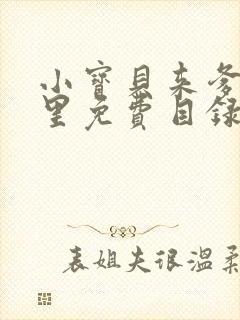 小寶貝来爹
里免費目録
表姐夫很温柔